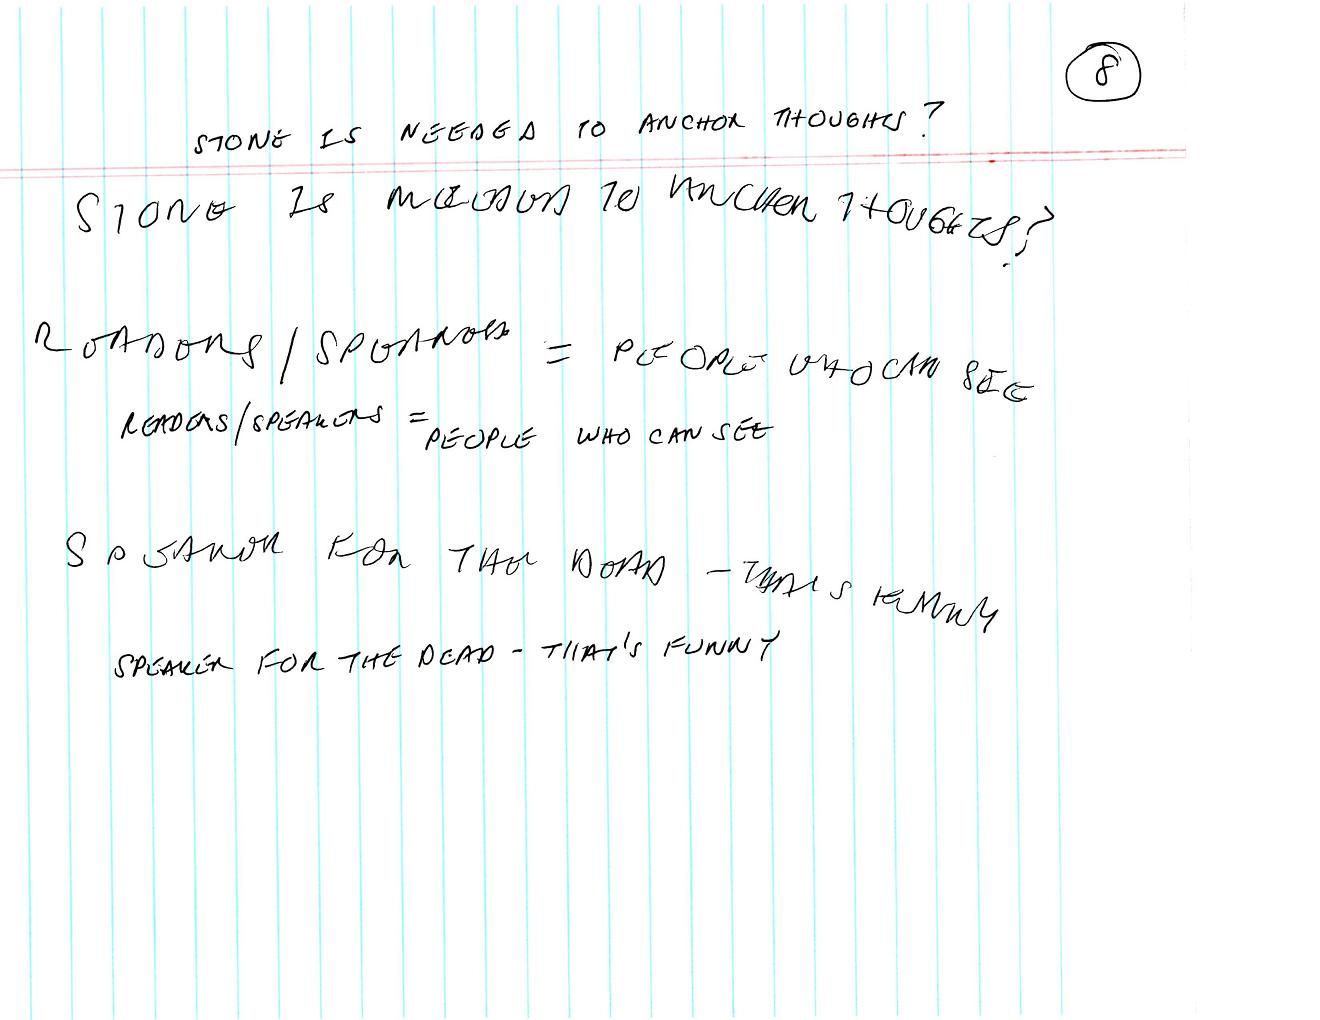 8
STONE IS NEEDED TO ANCHOR THOUGHTS?
STONE IS NEEDED TO ANCHOR THOUGHTS?
READERS/SPEAKERS = PEOPLE WHO CAN SEE
READERS/SPEAKERS = PEOPLE WHO CAN SEE
SPEAKER FOR THE DEAD - THAT'S FUNNY
SPEAKER FOR THE DEAD - THAT'S FUNNY